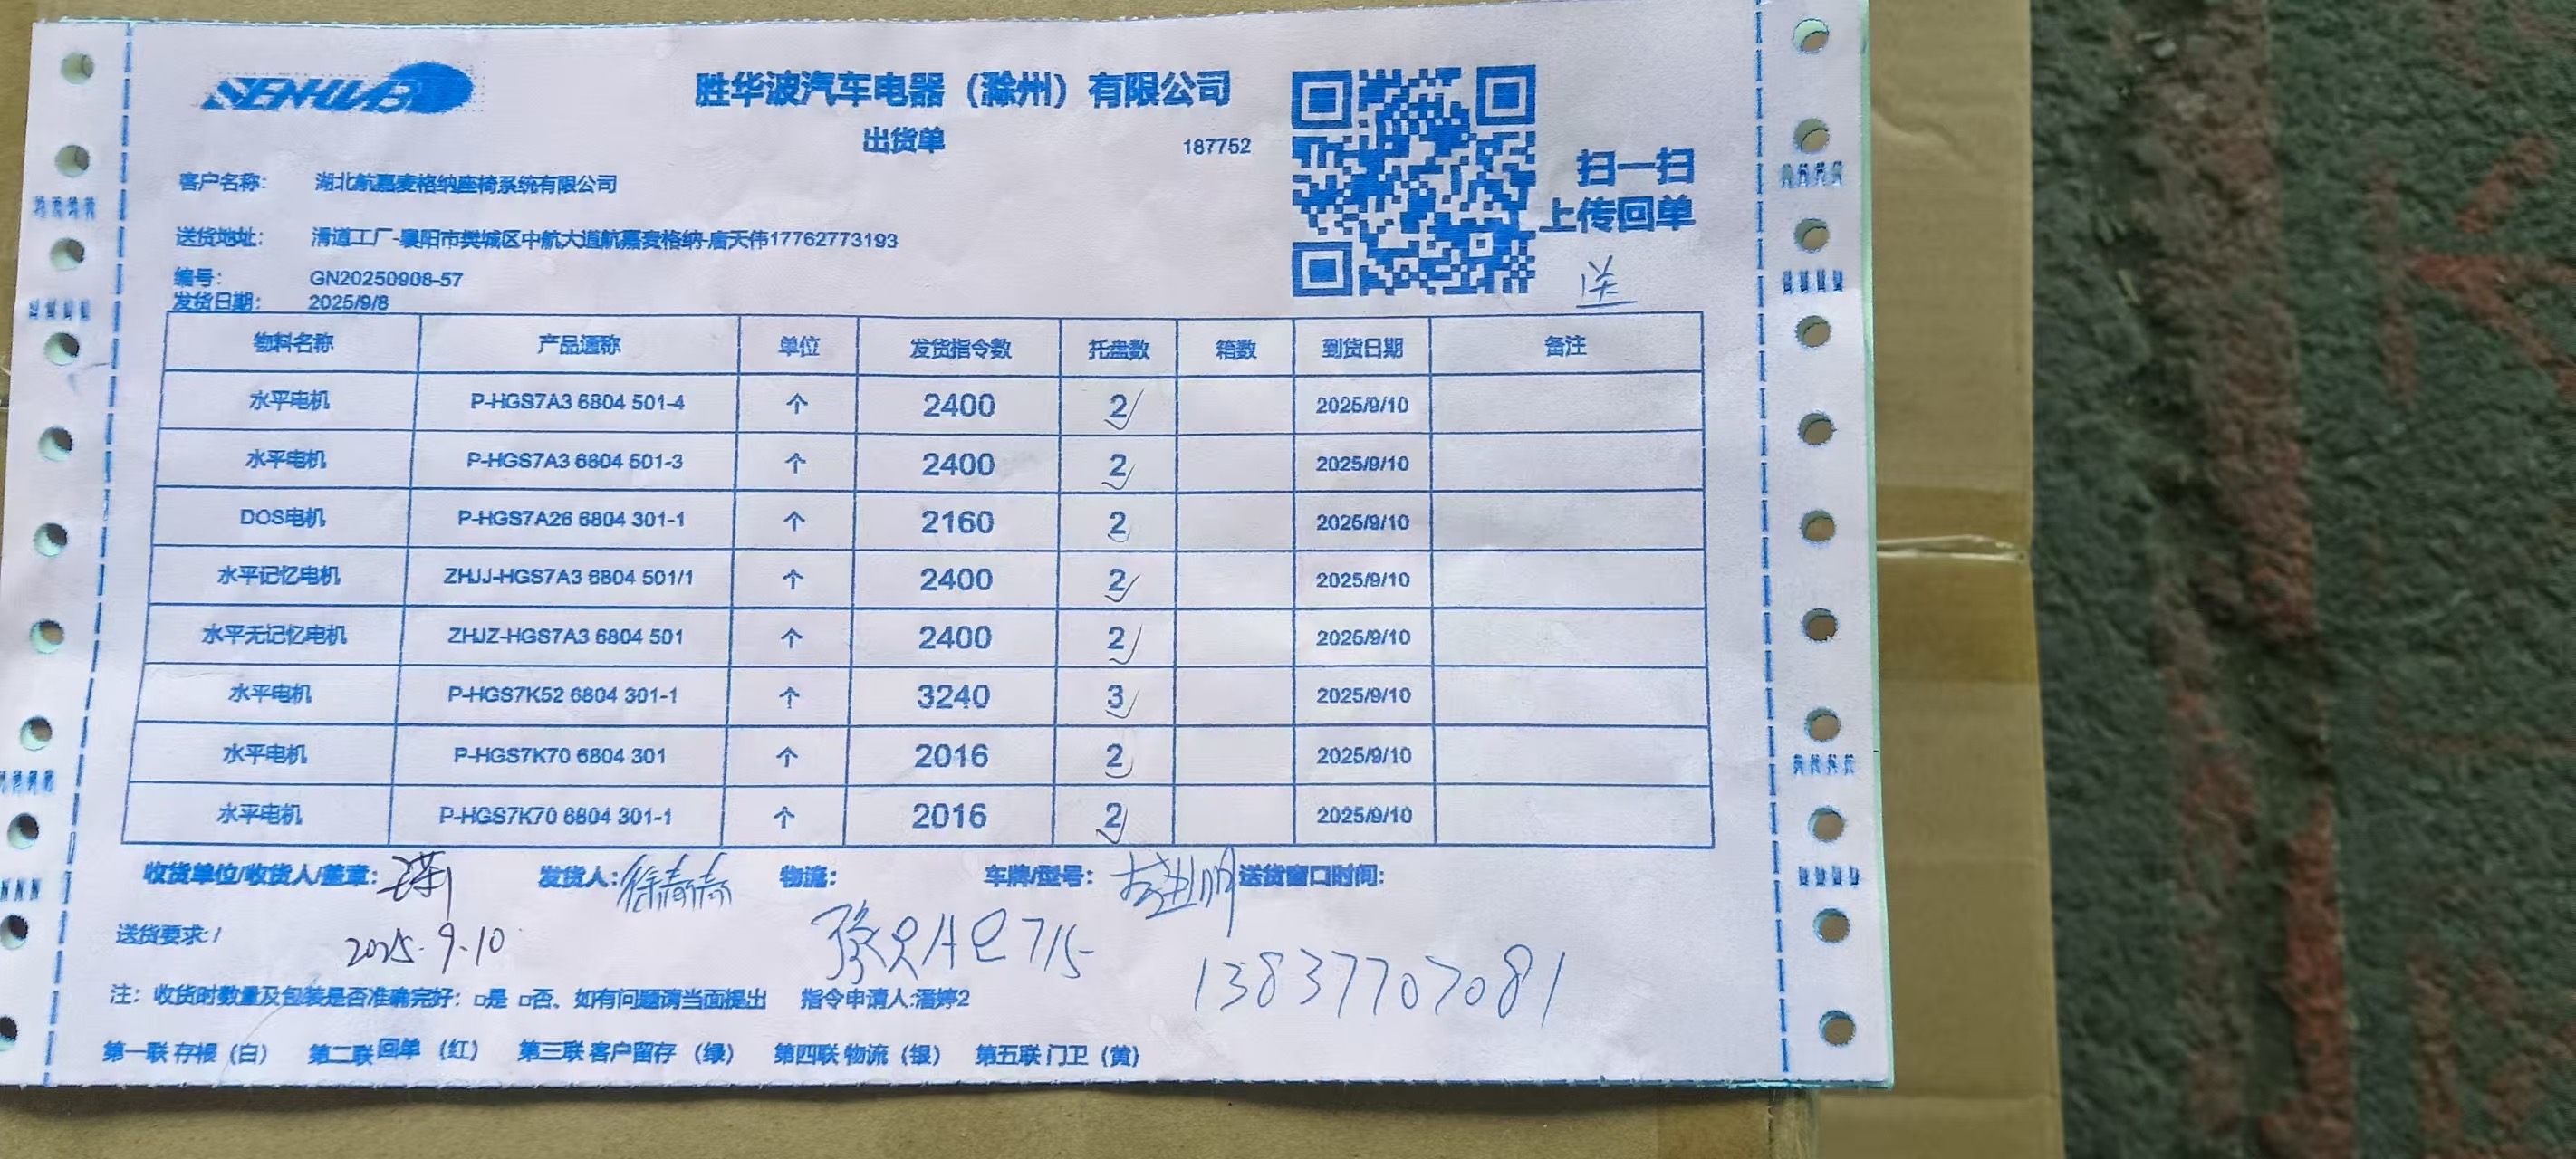 SENHWB
胜华波汽车电器（滁州）有限公司
出货单 187752
扫一扫
上传回单
送
客户名称： 湖北航嘉麦格纳座椅系统有限公司
送货地址： 滑道工厂-襄阳市樊城区中航大道航嘉麦格纳-唐天伟17762773193
编号： GN20250908-57
发货日期： 2025/9/8
物料名称 产品通称 单位 发货指令数 托盘数 箱数 到货日期 备注
水平电机 P-HGS7A3 6804 501-4 个 2400 2 2025/9/10
水平电机 P-HGS7A3 6804 501-3 个 2400 2 2025/9/10
DOS电机 P-HGS7A26 6804 301-1 个 2160 2 2025/9/10
水平记忆电机 ZHJJ-HGS7A3 6804 501/1 个 2400 2 2025/9/10
水平无记忆电机 ZHJZ-HGS7A3 6804 501 个 2400 2 2025/9/10
水平电机 P-HGS7K52 6804 301-1 个 3240 3 2025/9/10
水平电机 P-HGS7K70 6804 301 个 2016 2 2025/9/10
水平电机 P-HGS7K70 6804 301-1 个 2016 2 2025/9/10
收货单位/收货人/盖章： 发货人：徐青青 物流： 车牌/型号： 送货窗口时间：
送货要求：/ 2025.9.10 715 13837707081
注： 收货时数量及包装是否准确完好：□是 □否、如有问题请当面提出 指令申请人:潘婷2
第一联 存根（白） 第二联 回单（红） 第三联 客户留存（绿） 第四联 物流（银） 第五联 门卫（黄）